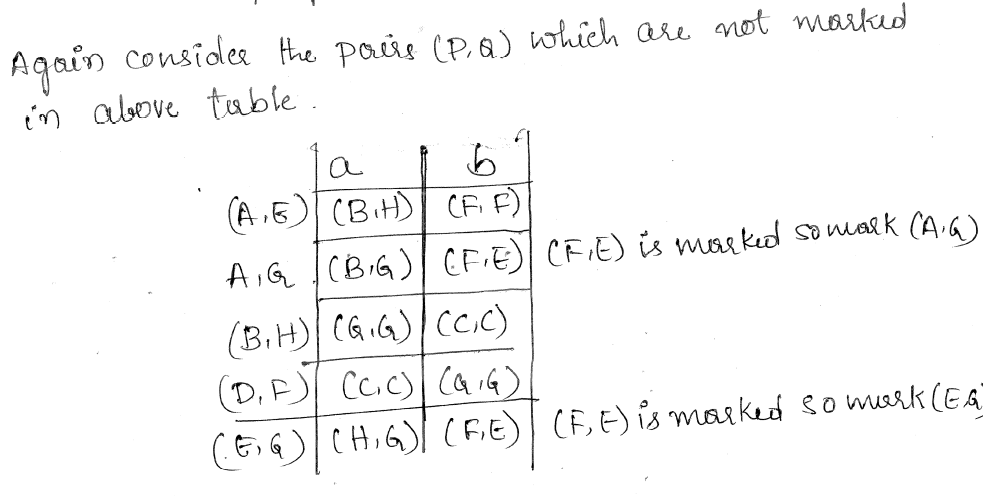 Again consider the pairs (P,Q) which are not marked
in above table.
a b
(A,E) (B,H) (F,F)
A,G (B,G) (F,E) (F,E) is marked so mark (A,G)
(B,H) (G,G) (C,C)
(D,F) (C,C) (G,G)
(E,G) (H,G) (F,E) (F,E) is marked so mark (E,G)